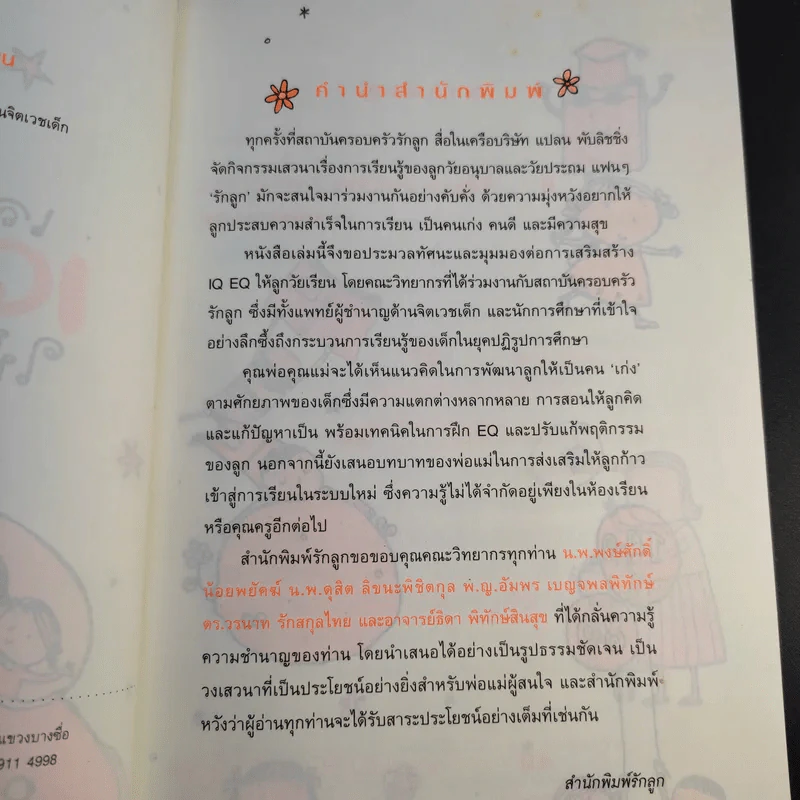 คำนำสำนักพิมพ์
ทุกครั้งที่สถาบันครอบครัวรักลูก สื่อในเครือบริษัท แปลน พับลิชชิ่ง
จัดกิจกรรมเสวนาเรื่องการเรียนรู้ของลูกวัยอนุบาลและวัยประถม แฟนๆ
‘รักลูก’ มักจะสนใจมาร่วมงานกันอย่างคับคั่ง ด้วยความมุ่งหวังอยากให้
ลูกประสบความสำเร็จในการเรียน เป็นคนเก่ง คนดี และมีความสุข
หนังสือเล่มนี้จึงขอประมวลทัศนะและมุมมองต่อการเสริมสร้าง
IQ EQ ให้ลูกวัยเรียน โดยคณะวิทยากรที่ได้ร่วมงานกับสถาบันครอบครัว
รักลูก ซึ่งมีทั้งแพทย์ผู้ชำนาญด้านจิตเวชเด็ก และนักการศึกษาที่เข้าใจ
อย่างลึกซึ้งถึงกระบวนการเรียนรู้ของเด็กในยุคปฏิรูปการศึกษา
คุณพ่อคุณแม่จะได้เห็นแนวคิดในการพัฒนาลูกให้เป็นคน ‘เก่ง’
ตามศักยภาพของเด็กซึ่งมีความแตกต่างหลากหลาย การสอนให้ลูกคิด
และแก้ปัญหาเป็น พร้อมเทคนิคในการฝึก EQ และปรับแก้พฤติกรรม
ของลูก นอกจากนี้ยังเสนอบทบาทของพ่อแม่ในการส่งเสริมให้ลูกก้าว
เข้าสู่การเรียนในระบบใหม่ ซึ่งความรู้ไม่ได้จำกัดอยู่เพียงในห้องเรียน
หรือคุณครูอีกต่อไป
สำนักพิมพ์รักลูกขอขอบคุณคณะวิทยากรทุกท่าน น.พ.พงษ์ศักดิ์
น้อยพยัคฆ์ น.พ.ดุสิต ลิขนะพิชิตกุล พ.ญ.อัมพร เบญจพลพิทักษ์
ดร.วรนาท รักสกุลไทย และอาจารย์ธิดา พิทักษ์สินสุข ที่ได้กลั่นความรู้
ความชำนาญของท่าน โดยนำเสนอได้อย่างเป็นรูปธรรมชัดเจน เป็น
วงเสวนาที่เป็นประโยชน์อย่างยิ่งสำหรับพ่อแม่ผู้สนใจ และสำนักพิมพ์
หวังว่าผู้อ่านทุกท่านจะได้รับสาระประโยชน์อย่างเต็มที่เช่นกัน
สำนักพิมพ์รักลูก
นจิตเวชเด็ก
แขวงบางซื่อ
911 4998